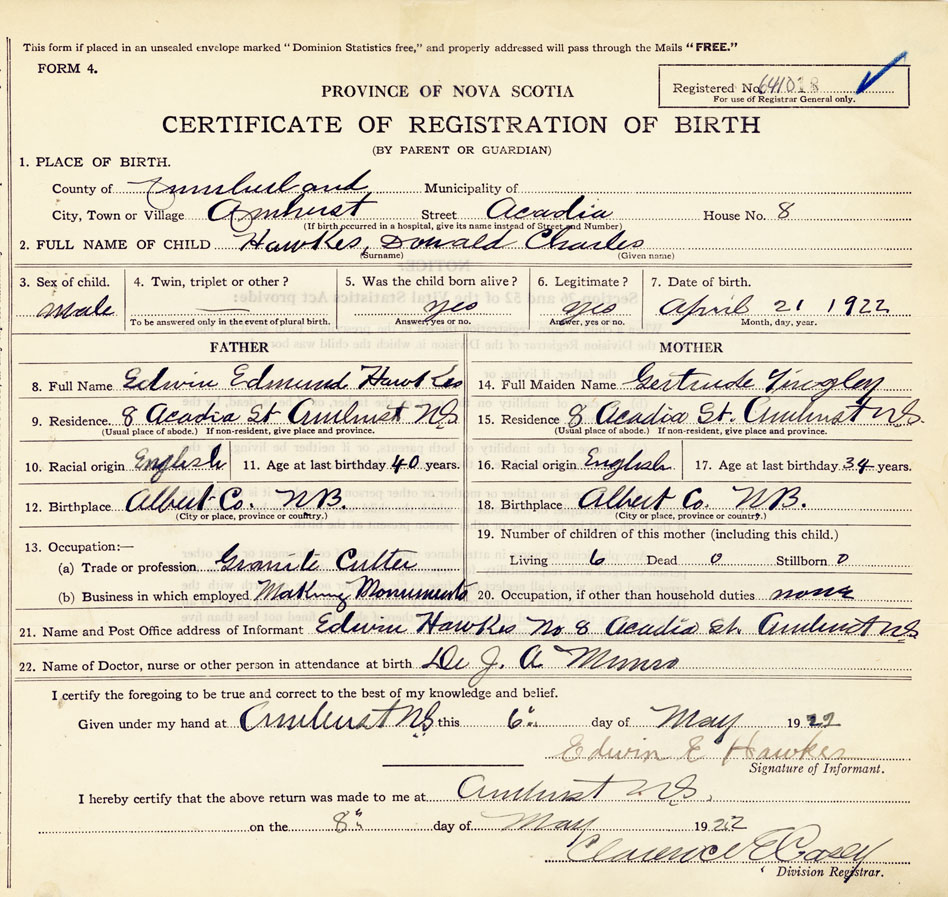 This form if placed in an unsealed envelope marked "Dominion Statistics free," and properly addressed will pass through the Mails "FREE."
FORM 4.
Registered No. 641018
For use of Registrar General only.
PROVINCE OF NOVA SCOTIA
CERTIFICATE OF REGISTRATION OF BIRTH
(BY PARENT OR GUARDIAN)
1. PLACE OF BIRTH.
County of Cumberland Municipality of
City, Town or Village Amherst Street Acadia House No. 8
(If birth occurred in a hospital, give its name instead of Street and Number)
2. FULL NAME OF CHILD Hawkes, Donald Charles
(Surname) (Given name)
3. Sex of child. 4. Twin, triplet or other? 5. Was the child born alive? 6. Legitimate? 7. Date of birth.
Male — yes yes April 21 1922
To be answered only in the event of plural birth. Answer, yes or no. Answer, yes or no. Month, day, year.
FATHER MOTHER
8. Full Name Edwin Edmund Hawkes 14. Full Maiden Name Gertrude Tingley
9. Residence 8 Acadia St. Amherst N.S. 15. Residence 8 Acadia St. Amherst N.S.
(Usual place of abode.) If non-resident, give place and province. (Usual place of abode.) If non-resident, give place and province.
10. Racial origin English 11. Age at last birthday 40 years. 16. Racial origin English 17. Age at last birthday 34 years.
12. Birthplace Albert Co. N.B. 18. Birthplace Albert Co. N.B.
(City or place, province or country.) (City or place, province or country.)
13. Occupation:— 19. Number of children of this mother (including this child.)
(a) Trade or profession Granite Cutter Living 6 Dead 0 Stillborn 0
(b) Business in which employed Making Monuments 20. Occupation, if other than household duties none
21. Name and Post Office address of Informant Edwin Hawkes No 8 Acadia St. Amherst N.S.
22. Name of Doctor, nurse or other person in attendance at birth Dr J. A. Munro
I certify the foregoing to be true and correct to the best of my knowledge and belief.
Given under my hand at Amherst N.S this 6" day of May 1922
Edwin E Hawkes
Signature of Informant.
I hereby certify that the above return was made to me at Amherst N.S.
on the 8" day of May 1922
Clarence E Casey
Division Registrar.